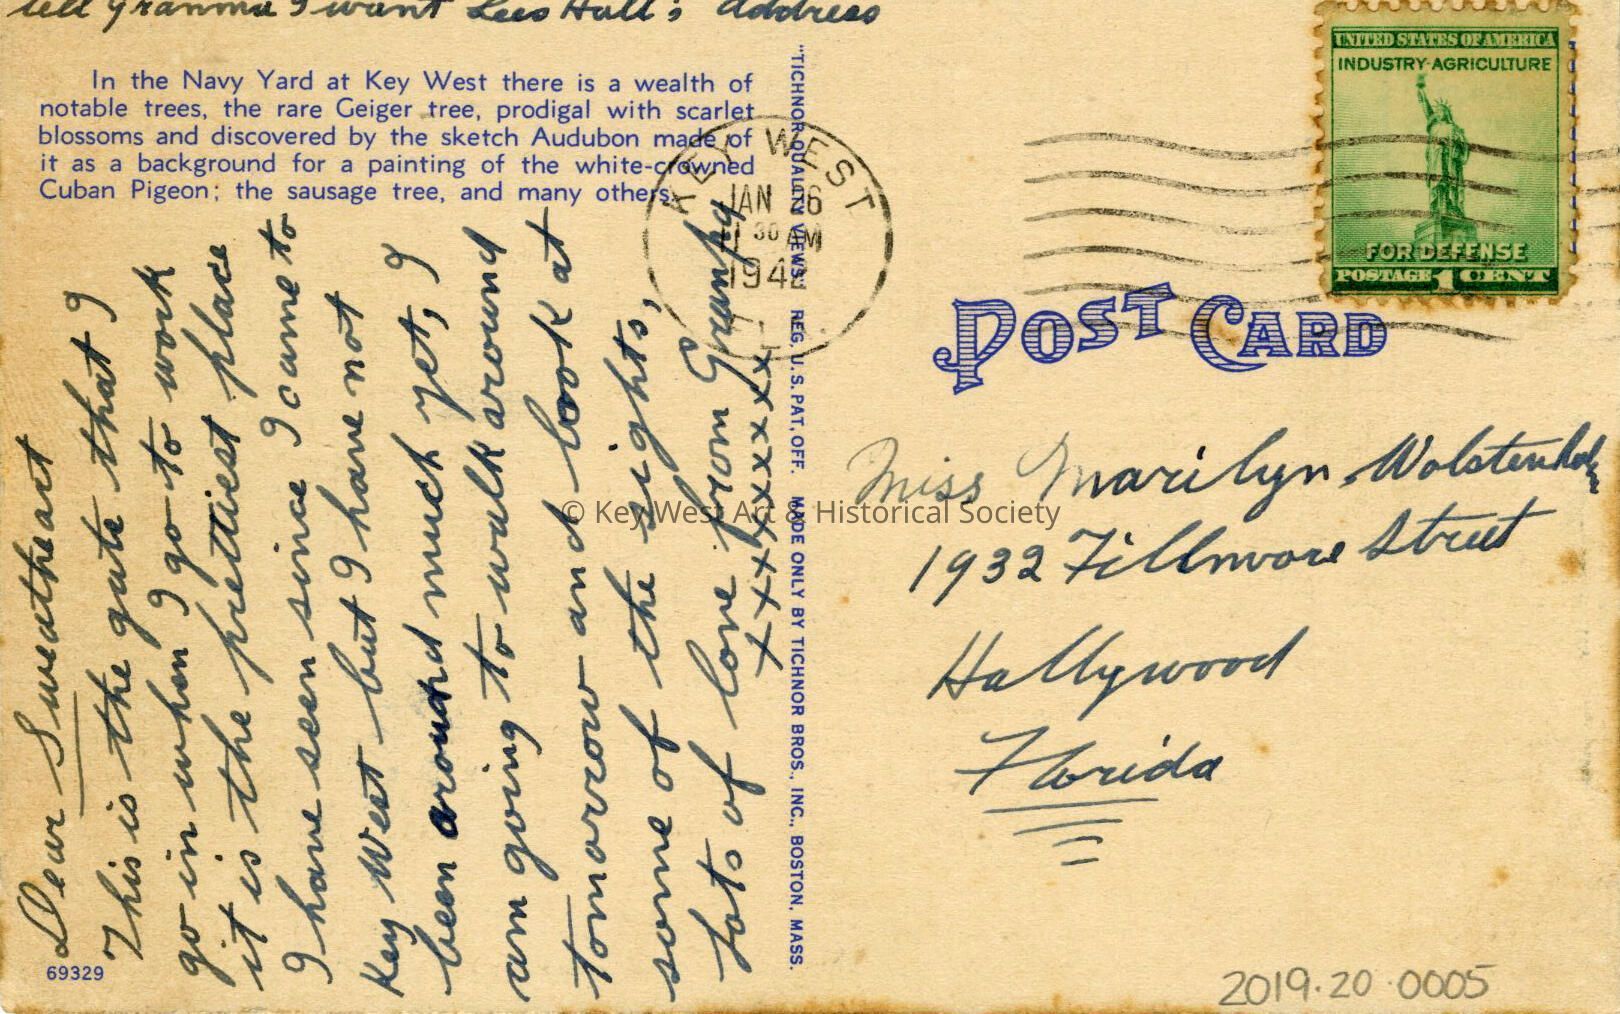 tell Granma I want Lees Hall's address
In the Navy Yard at Key West there is a wealth of
notable trees, the rare Geiger tree, prodigal with scarlet
blossoms and discovered by the sketch Audubon made of
it as a background for a painting of the white-crowned
Cuban Pigeon; the sausage tree, and many others.
Dear Sweatheart
This is the gate that I
go in when I go to work
it is the prettiest place
I have seen since I came to
Key West but I have not
been around much yet, I
am going to walk around
tomorrow and look at
some of the sights,
Lots of love from Grampy
xxxxxxxxx
69329
"TICHNOR QUALITY VIEWS" REG. U.S. PAT. OFF. MADE ONLY BY TICHNOR BROS., INC., BOSTON, MASS.
KEY WEST
JAN 26
1 30 AM
1942
UNITED STATES OF AMERICA
INDUSTRY-AGRICULTURE
FOR DEFENSE
POSTAGE 1 CENT
POST CARD
Miss Marilyn Wolstenholm
1932 Fillmore Street
Hollywood
Florida
© Key West Art & Historical Society
2019.20.0005